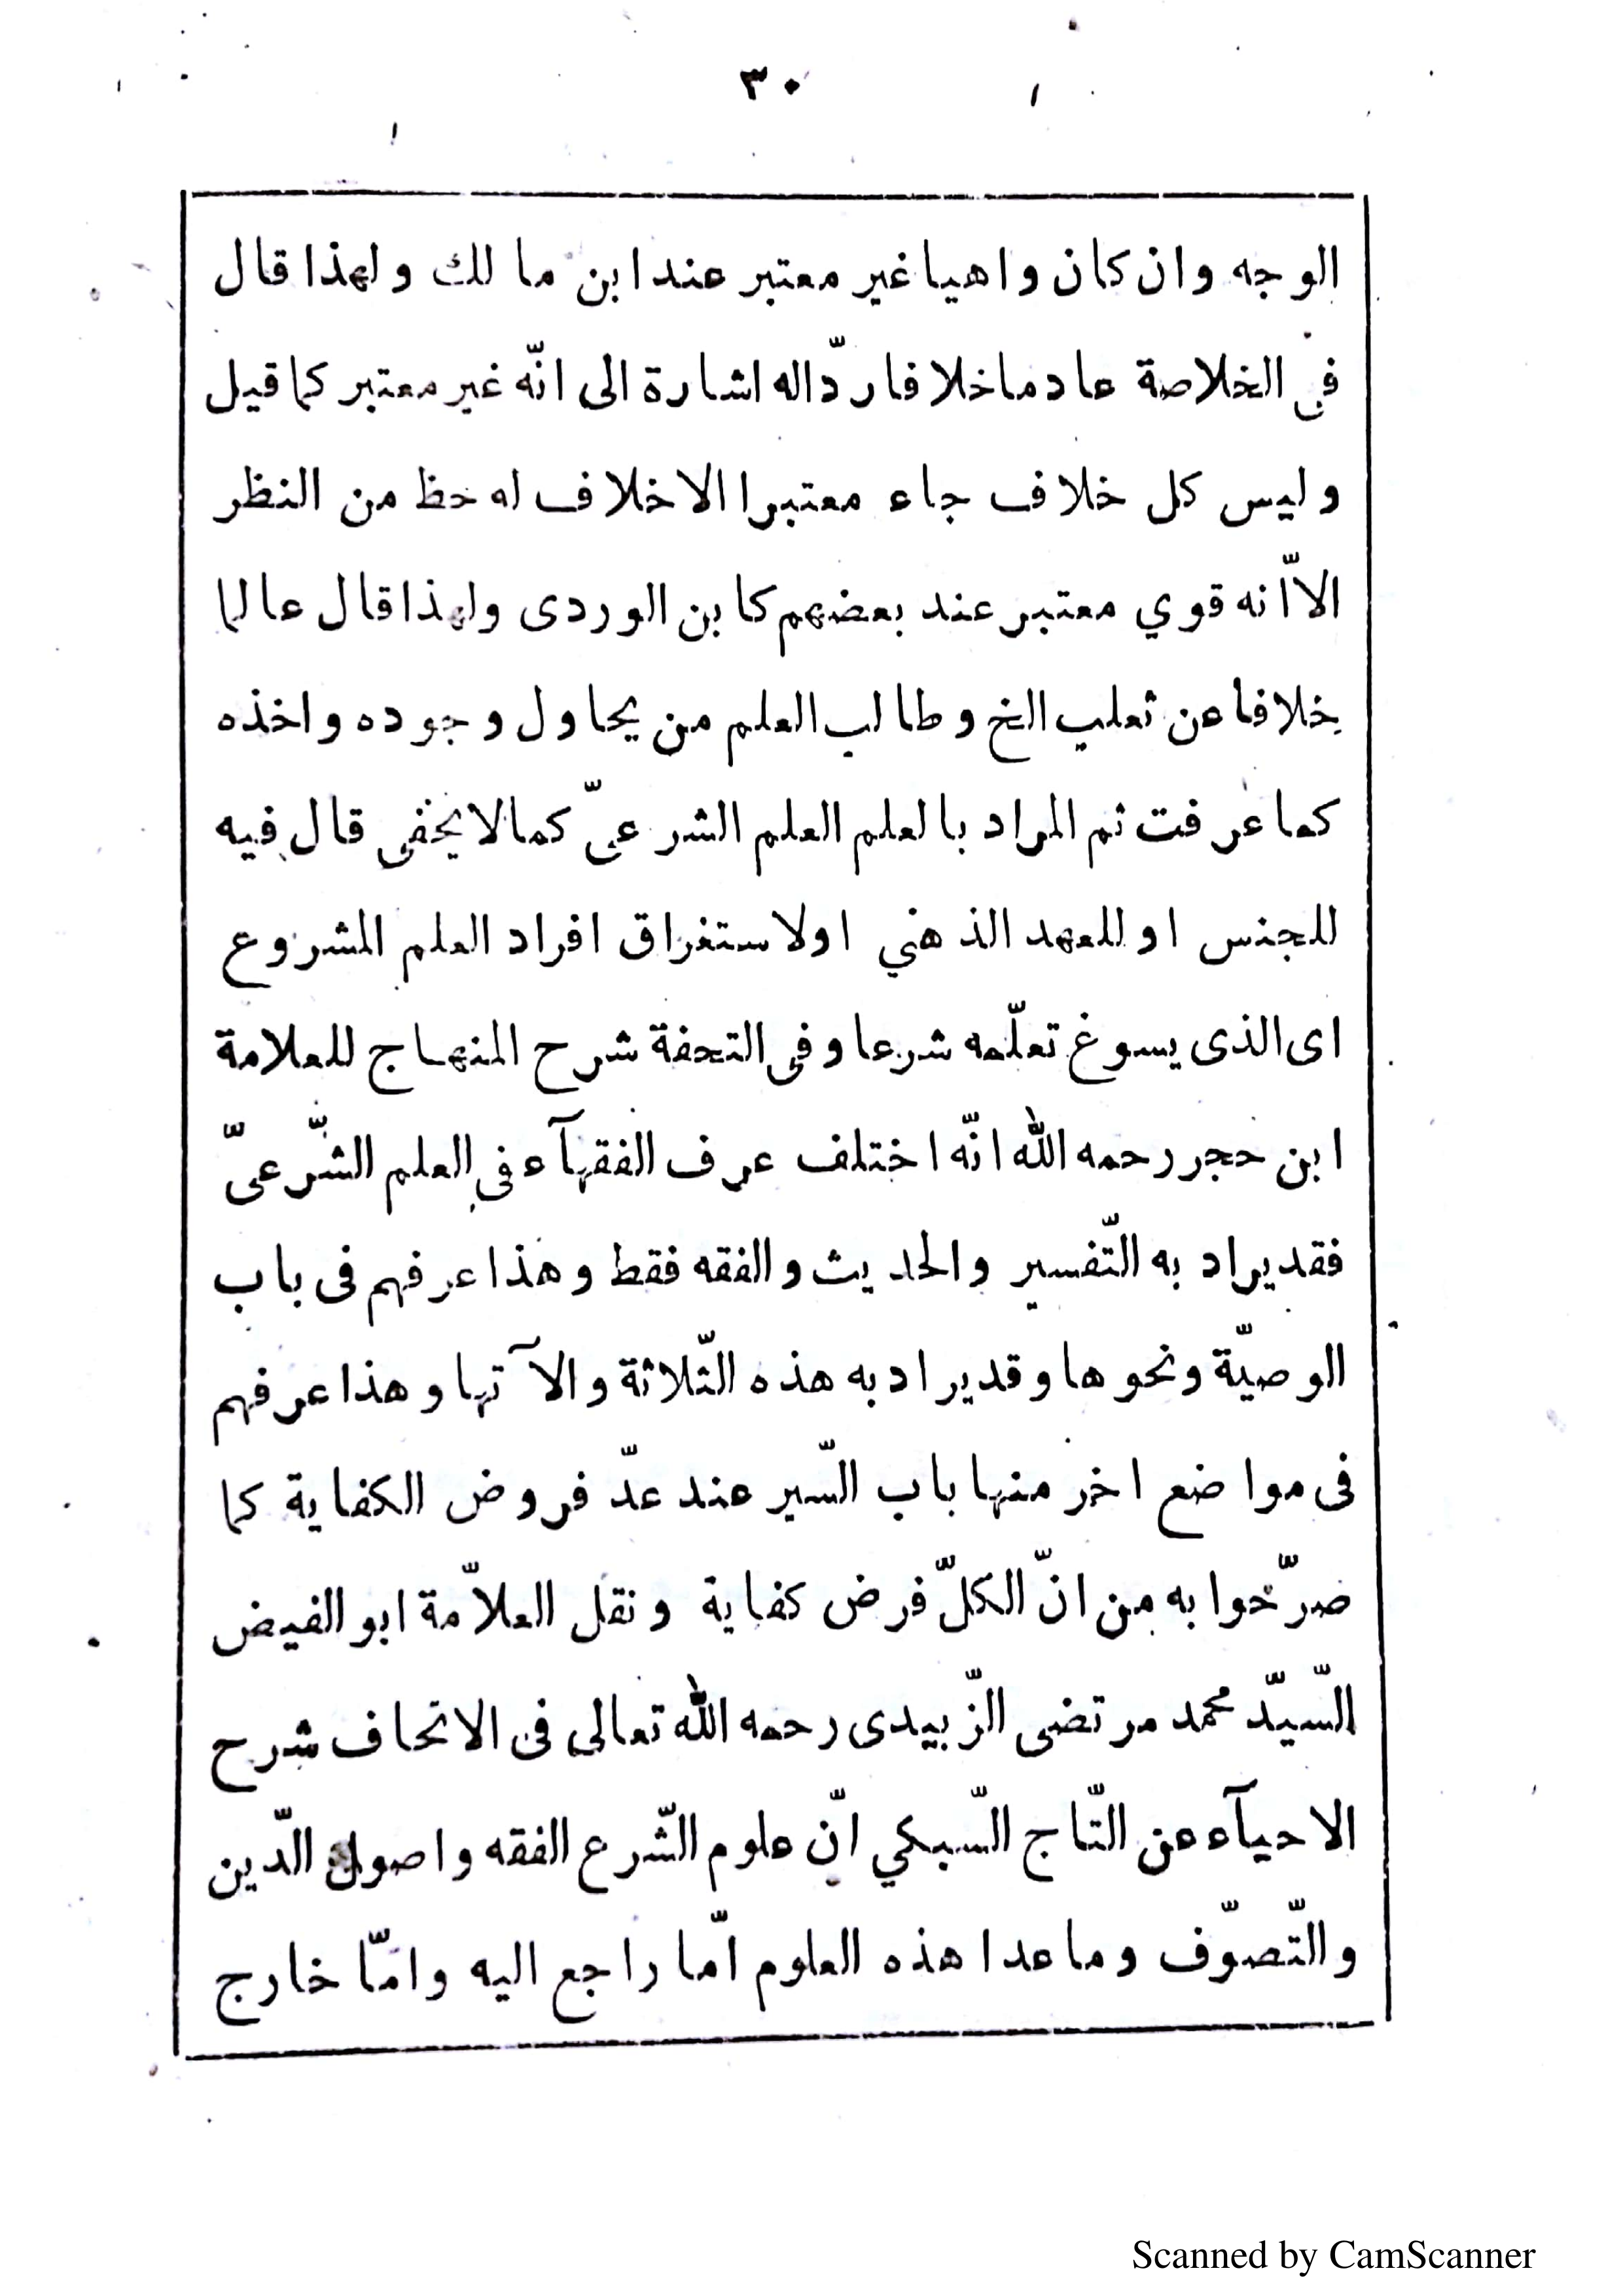 ٣٠
الوجه وان كان واهيا غير معتبر عند ابن مالك ولهذا قال
فى الخلاصة عادما خلا فاردّاله اشارة الى انّه غير معتبر كما قيل
وليس كل خلاف جاء معتبرا الا خلاف له حظ من النظر
الاّ انه قوي معتبر عند بعضهم كابن الوردى ولهذا قال عالما
خلافا عن ثعلب الخ وطالب العلم من يحاول وجوده واخذه
كما عرفت ثم المراد بالعلم العلم الشرعىّ كما لا يخفى قال فيه
للجنس او للعهد الذهني اولاستغراق افراد العلم المشروع
اى الذى يسوغ تعلّمه شرعا وفى التحفة شرح المنهاج للعلامة
ابن حجر رحمه الله انّه اختلف عرف الفقهآء فى العلم الشّرعىّ
فقد يراد به التّفسير والحديث والفقه فقط وهذا عرفهم فى باب
الوصيّة ونحوها وقد يراد به هذه الثّلاثة والآتها وهذا عرفهم
فى مواضع اخر منها باب السّير عند عدّ فروض الكفاية كما
صرّحوا به من انّ الكلّ فرض كفاية ونقل العلاّمة ابو الفيض
السّيّد محمد مرتضى الزّبيدى رحمه الله تعالى فى الاتحاف شرح
الاحيآء عن التّاج السّبكي انّ علوم الشّرع الفقه واصول الدّين
والتّصوّف وما عدا هذه العلوم امّا راجع اليه وامّا خارج
Scanned by CamScanner